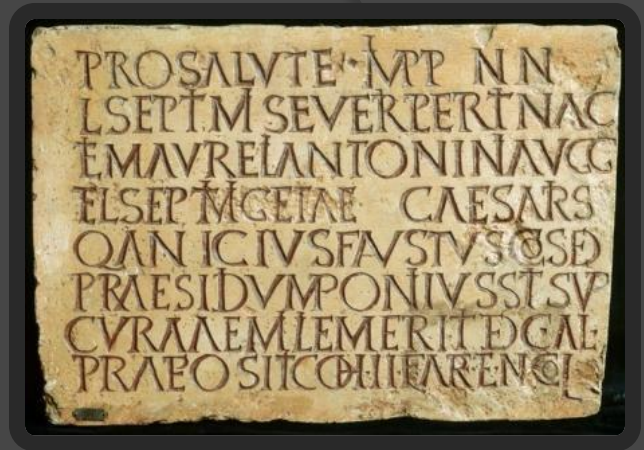 PRO SALVTE IMPP N N
L SEPTIMI SEVERI PERTINAC
ET M AVRELI ANTONINI AVGG
ET L SEPTIMI GETAE CAESARIS
Q ANICIVS FAVSTVS COS ED
PRAESIDVM PONIVSSIT SVP
CVRAM AEMILI EMERITI DEC AL
PRAEPOSITI COH III